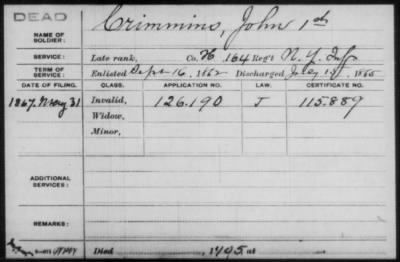 DEAD
NAME OF SOLDIER: Crimmins, John 1st
SERVICE: Late rank, Co. H 164 Reg't N.Y. Inf
TERM OF SERVICE: Enlisted Sept 16, 1862 Discharged July 15, 1865
DATE OF FILING. CLASS. APPLICATION NO. LAW. CERTIFICATE NO.
1867. May 31 Invalid, 126.190 J 115.889
Widow,
Minor,
ADDITIONAL SERVICES:
REMARKS:
Died 1905, at